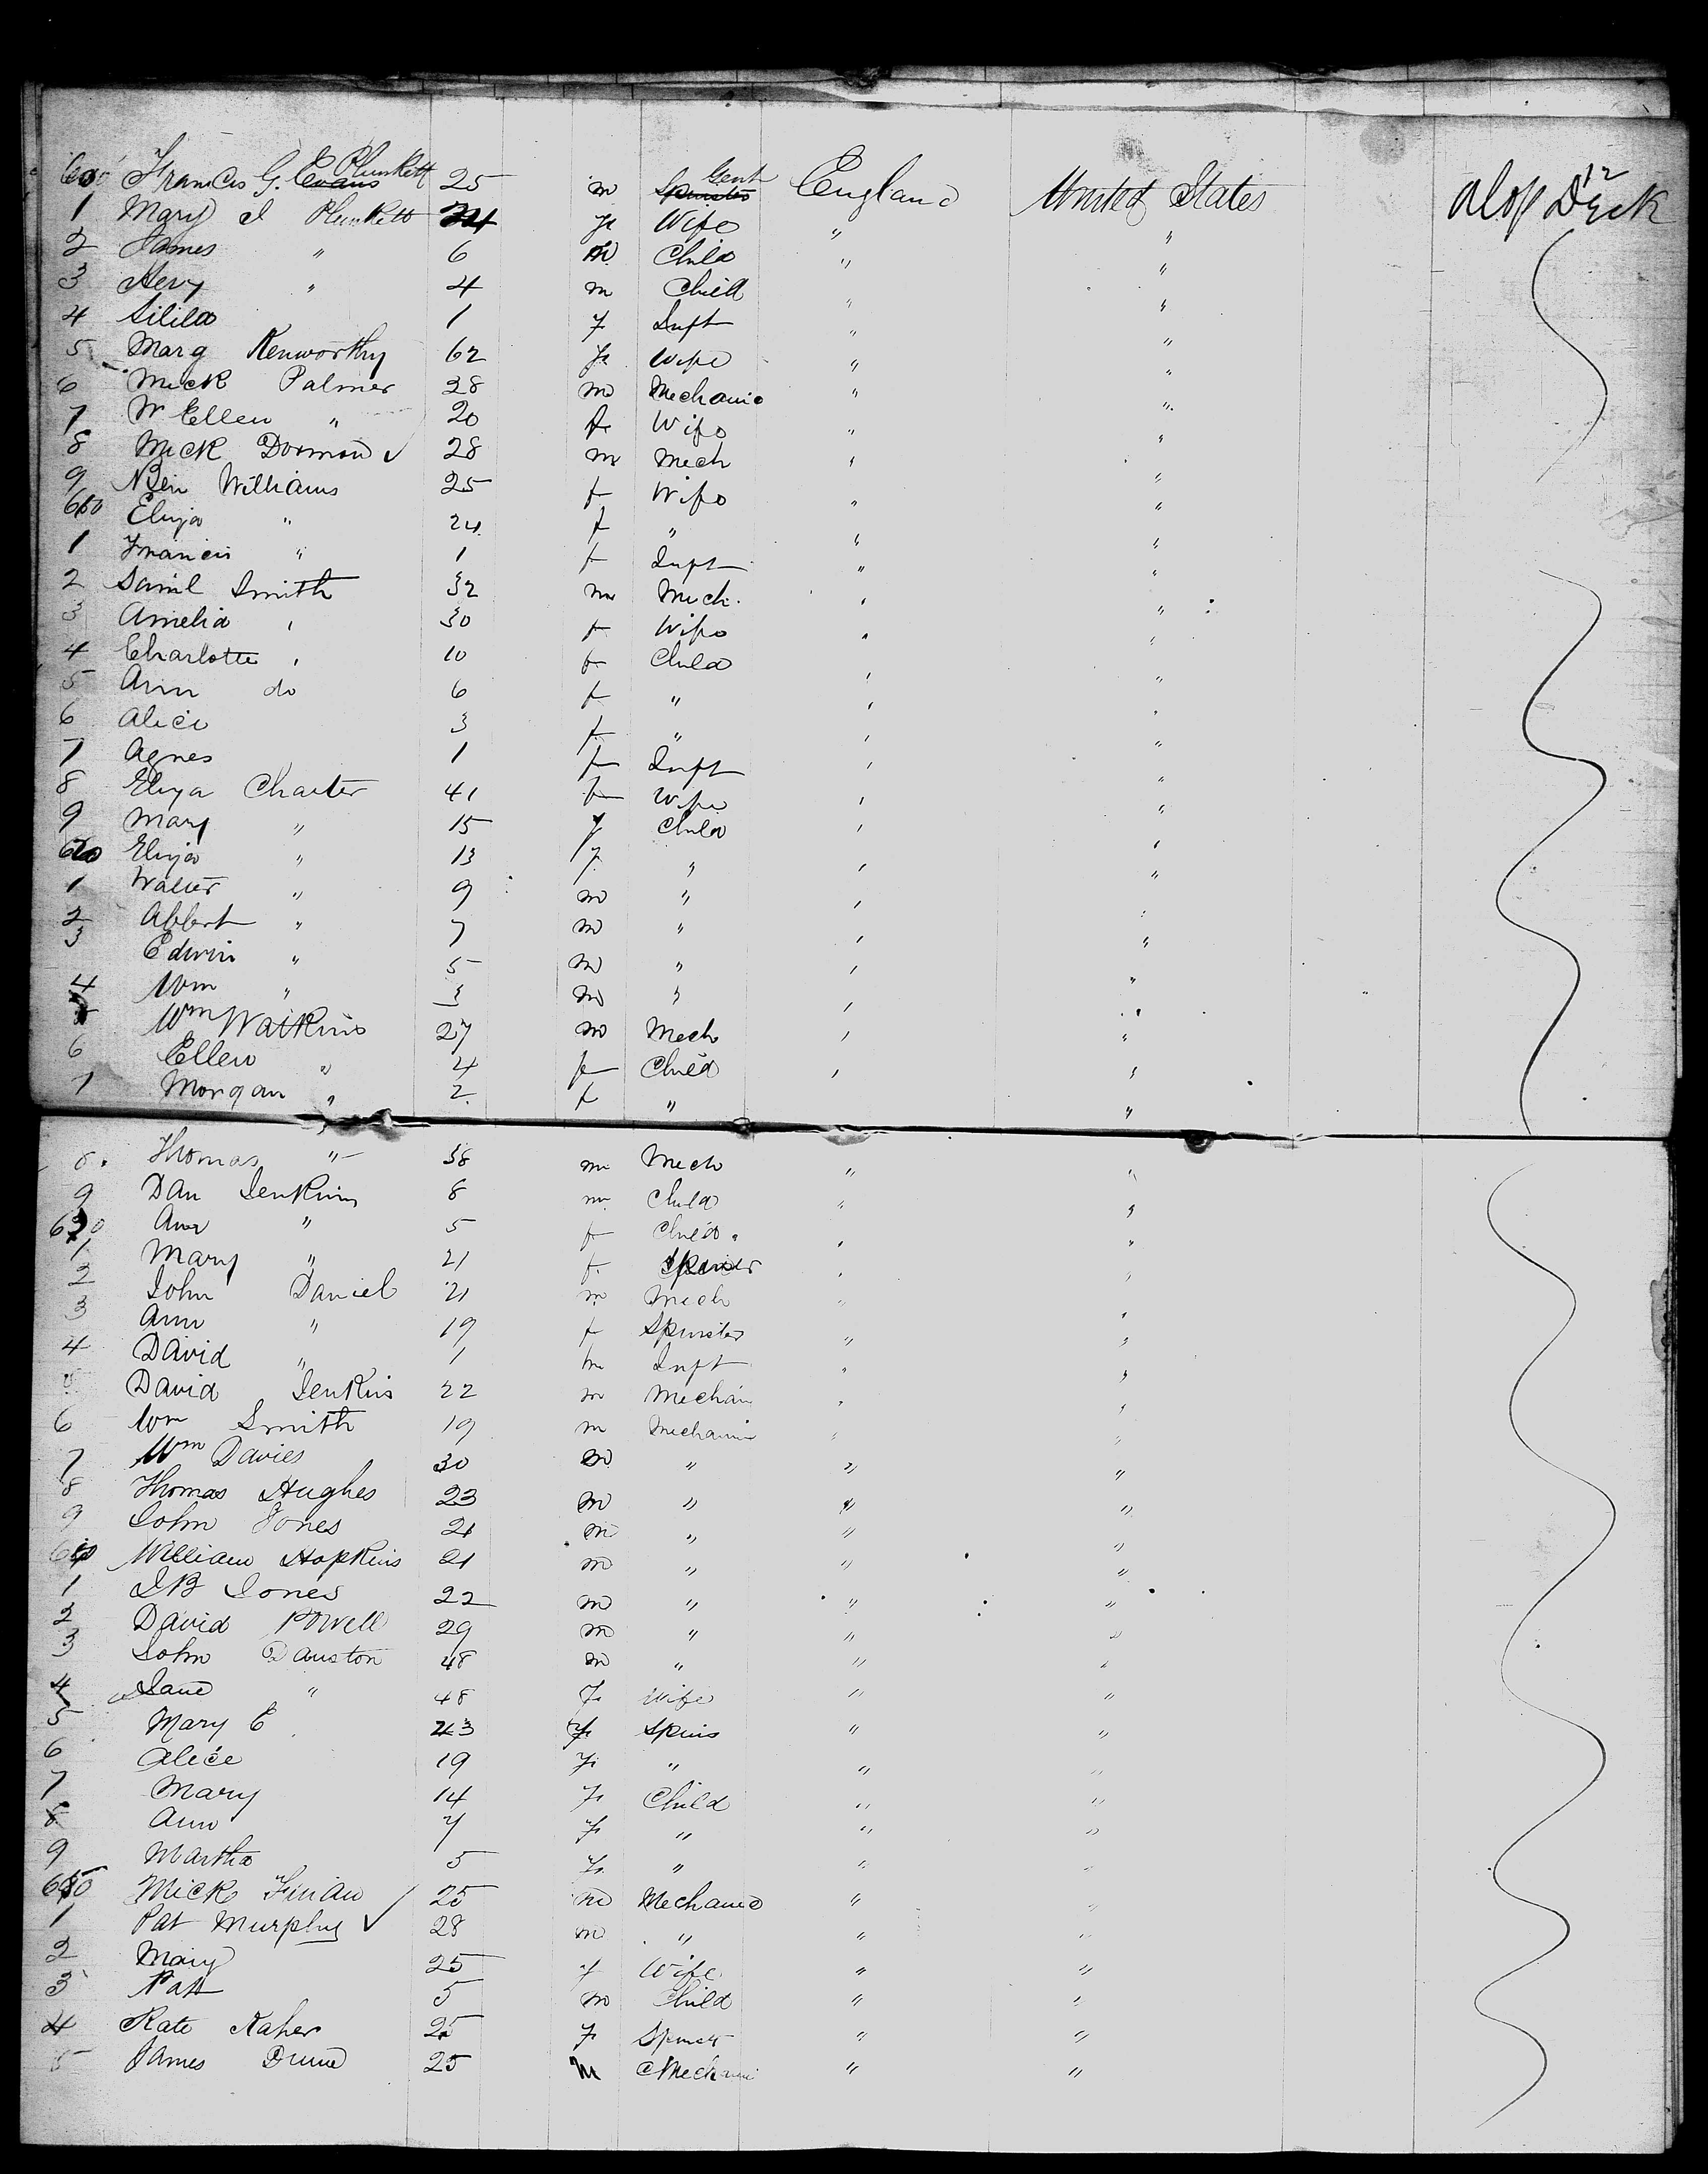 600 Francis G. Evans Plunkett 25 m Spinster Gent England United States Alof Deck 12
1 Mary I Plunkett 24 fe Wife " "
2 James " 6 m Child " "
3 Hery " 4 m Child " "
4 Silila 1 f Inft " "
5 Marg Kenworthy 62 fe Wife " "
6 Mick Palmer 28 m Mechanic " "
7 W Ellen " 20 fe Wife " "
8 Mick Dormon ✓ 28 m Mech " "
9 Ben Williams 25 f Wife " "
610 Eliza " 24 f " " "
1 Francis " 1 f Inft " "
2 Saml Smith 32 m Mech. " "
3 Amelia " 30 f Wife " "
4 Charlotte " 10 f Child " "
5 Ann do 6 f " " "
6 Alice 3 f " " "
7 Agnes 1 f Inft " "
8 Eliza Charter 41 f Wife " "
9 Mary " 15 f Child " "
620 Eliza " 13 f " " "
1 Walter " 9 m " " "
2 Albert " 7 m " " "
3 Edwin " 5 m " " "
4 Wm " 3 m " " "
5 Wm Watkins 27 m Mech " "
6 Ellen " 4 f Child " "
7 Morgan " 2 f " "
8 Thomas " 38 m Mech " "
9 Dan Jenkins 8 m Child " "
630 Ann " 5 f Child " "
1 Mary " 21 f " "
2 John Daniel 21 m Mech " "
3 Ann " 19 f Spinster " "
4 David " 1 m Inft " "
5 David Jenkins 22 m Mechan " "
6 Wm Smith 19 m Mechanic " "
7 Wm Davies 30 m " " "
8 Thomas Hughes 23 m " " "
9 John Jones 21 m " " "
640 William Hopkins 21 m " " "
1 J B Jones 22 m " " "
2 David Powell 29 m " " "
3 John Danston 48 m " " "
4 Jane " 48 f Wife " "
5 Mary E 23 f Spins " "
6 Alice 19 f " " "
7 Mary 14 f Child " "
8 Ann 7 f " " "
9 Martha 5 f " " "
650 Mick Finan ✓ 25 m Mechanic " "
1 Pat Murphy ✓ 28 m " " "
2 Mary 25 f Wife " "
3 Patt 5 m Child " "
4 Kate Kaher 25 f Spinst " "
5 James Dunne 25 m Mechanic " "